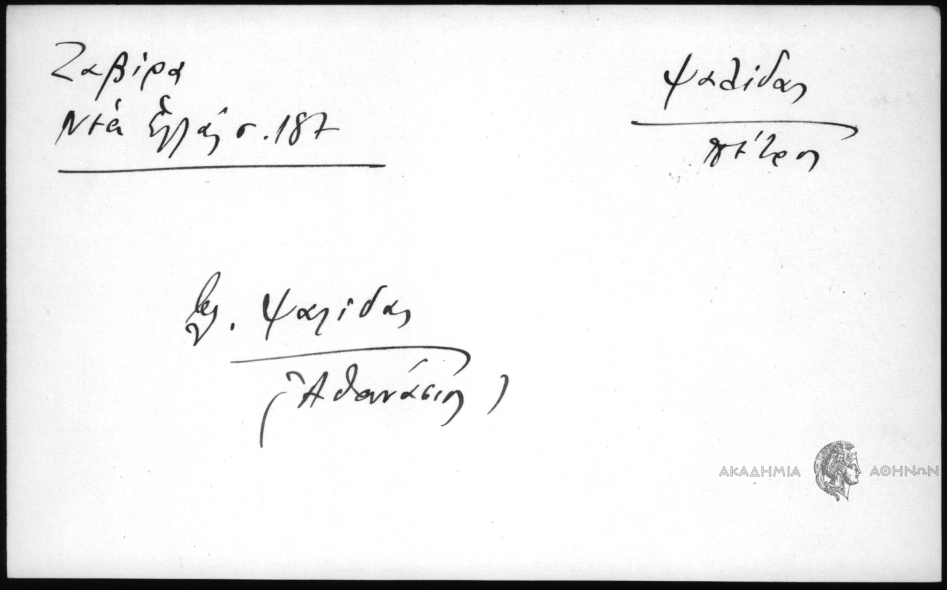 Ζαβίρα
Νέα Ἑλλάς σ. 187
Ψαλίδας
Πέτρος
βλ. Ψαλίδας
(Ἀθανάσιος)
ΑΚΑΔΗΜΙΑ ΑΘΗΝΩΝ